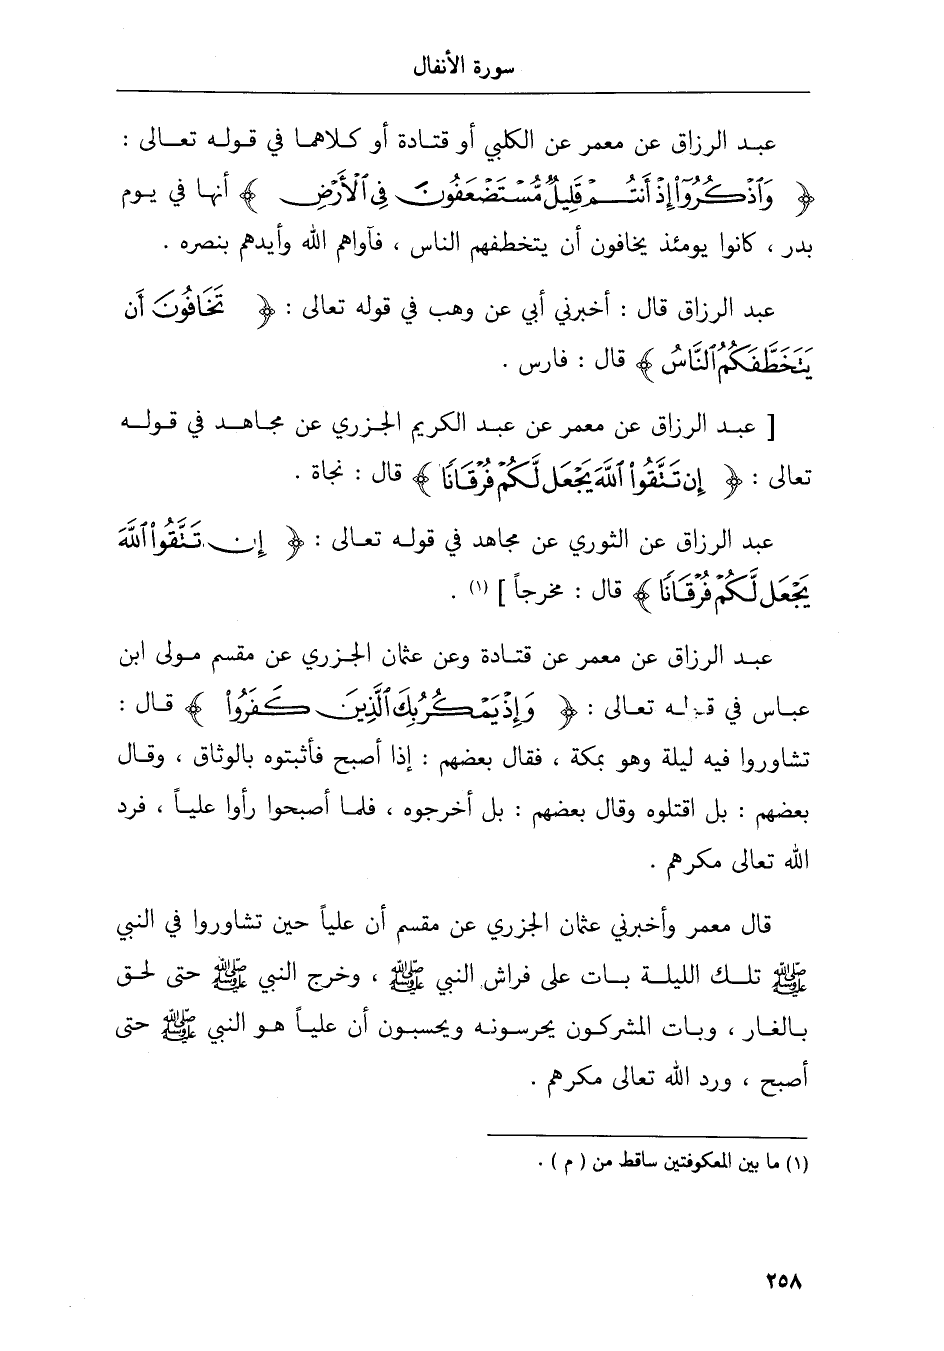 سورة الأنفال
عبد الرزاق عن معمر عن الكلبي أو قتادة أو كلاهما في قوله تعالى :
﴿ وَٱذْكُرُوٓا۟ إِذْ أَنتُمْ قَلِيلٌ مُّسْتَضْعَفُونَ فِى ٱلْأَرْضِ ﴾ أنها في يوم
بدر ، كانوا يومئذ يخافون أن يتخطفهم الناس ، فآواهم الله وأيدهم بنصره .
عبد الرزاق قال : أخبرني أبي عن وهب في قوله تعالى : ﴿ تَخَافُونَ أَن
يَتَخَطَّفَكُمُ ٱلنَّاسُ ﴾ قال : فارس .
[ عبد الرزاق عن معمر عن عبد الكريم الجزري عن مجاهد في قوله
تعالى : ﴿ إِن تَتَّقُوا۟ ٱللَّهَ يَجْعَل لَّكُمْ فُرْقَانًا ﴾ قال : نجاة .
عبد الرزاق عن الثوري عن مجاهد في قوله تعالى : ﴿ إِن تَتَّقُوا۟ ٱللَّهَ
يَجْعَل لَّكُمْ فُرْقَانًا ﴾ قال : مخرجاً ] (١) .
عبد الرزاق عن معمر عن قتادة وعن عثمان الجزري عن مقسم مولى ابن
عباس في قوله تعالى : ﴿ وَإِذْ يَمْكُرُ بِكَ ٱلَّذِينَ كَفَرُوا۟ ﴾ قال :
تشاوروا فيه ليلة وهو بمكة ، فقال بعضهم : إذا أصبح فأثبتوه بالوثاق ، وقال
بعضهم : بل اقتلوه وقال بعضهم : بل أخرجوه ، فلما أصبحوا رأوا علياً ، فرد
الله تعالى مكرهم .
قال معمر وأخبرني عثمان الجزري عن مقسم أن علياً حين تشاوروا في النبي
ﷺ تلك الليلة بات على فراش النبي ﷺ ، وخرج النبي ﷺ حتى لحق
بالغار ، وبات المشركون يحرسونه ويحسبون أن علياً هو النبي ﷺ حتى
أصبح ، ورد الله تعالى مكرهم .
(١) ما بين المعكوفتين ساقط من ( م ) .
٢٥٨